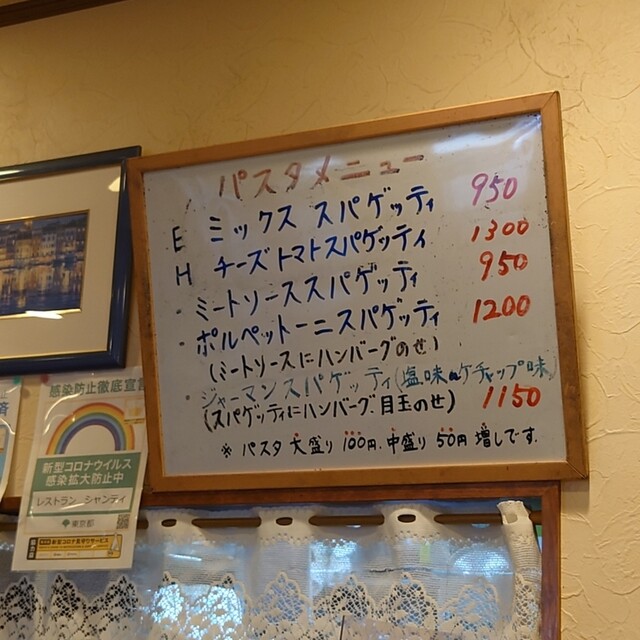 パスタメニュー
E ミックス スパゲッティ 950
H チーズトマトスパゲッティ 1300
・ミートソーススパゲッティ 950
・ポルペットーニスパゲッティ 1200
(ミートソースにハンバーグのせ)
・ジャーマンスパゲッティ(塩味orケチャップ味)
(スパゲッティにハンバーグ.目玉のせ) 1150
※ パスタ 大盛り 100円. 中盛り 50円 増しです.
感染防止徹底宣言
新型コロナウイルス
感染拡大防止中
レストラン シャンティ
東京都